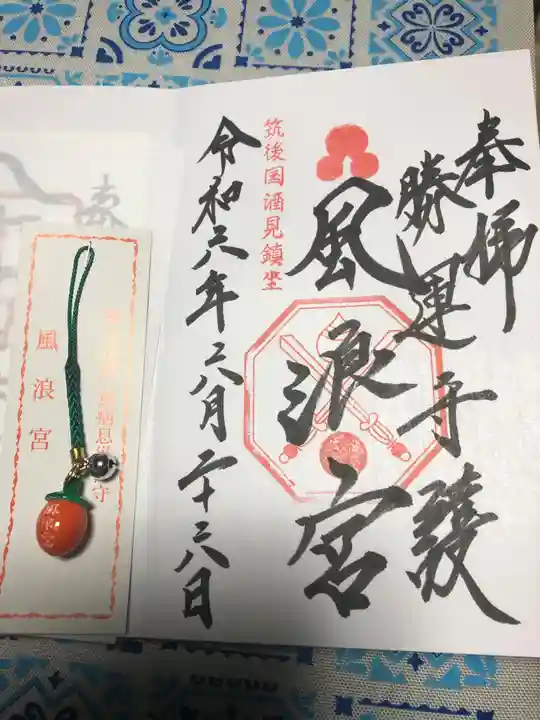 奉拝
勝運手護
風浪宮
筑後国酒見鎮坐
令和六年六月二十六日
風浪宮